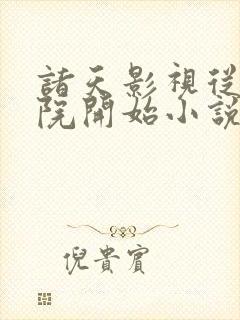 諸天影視從
院開始小說
倪貴賓